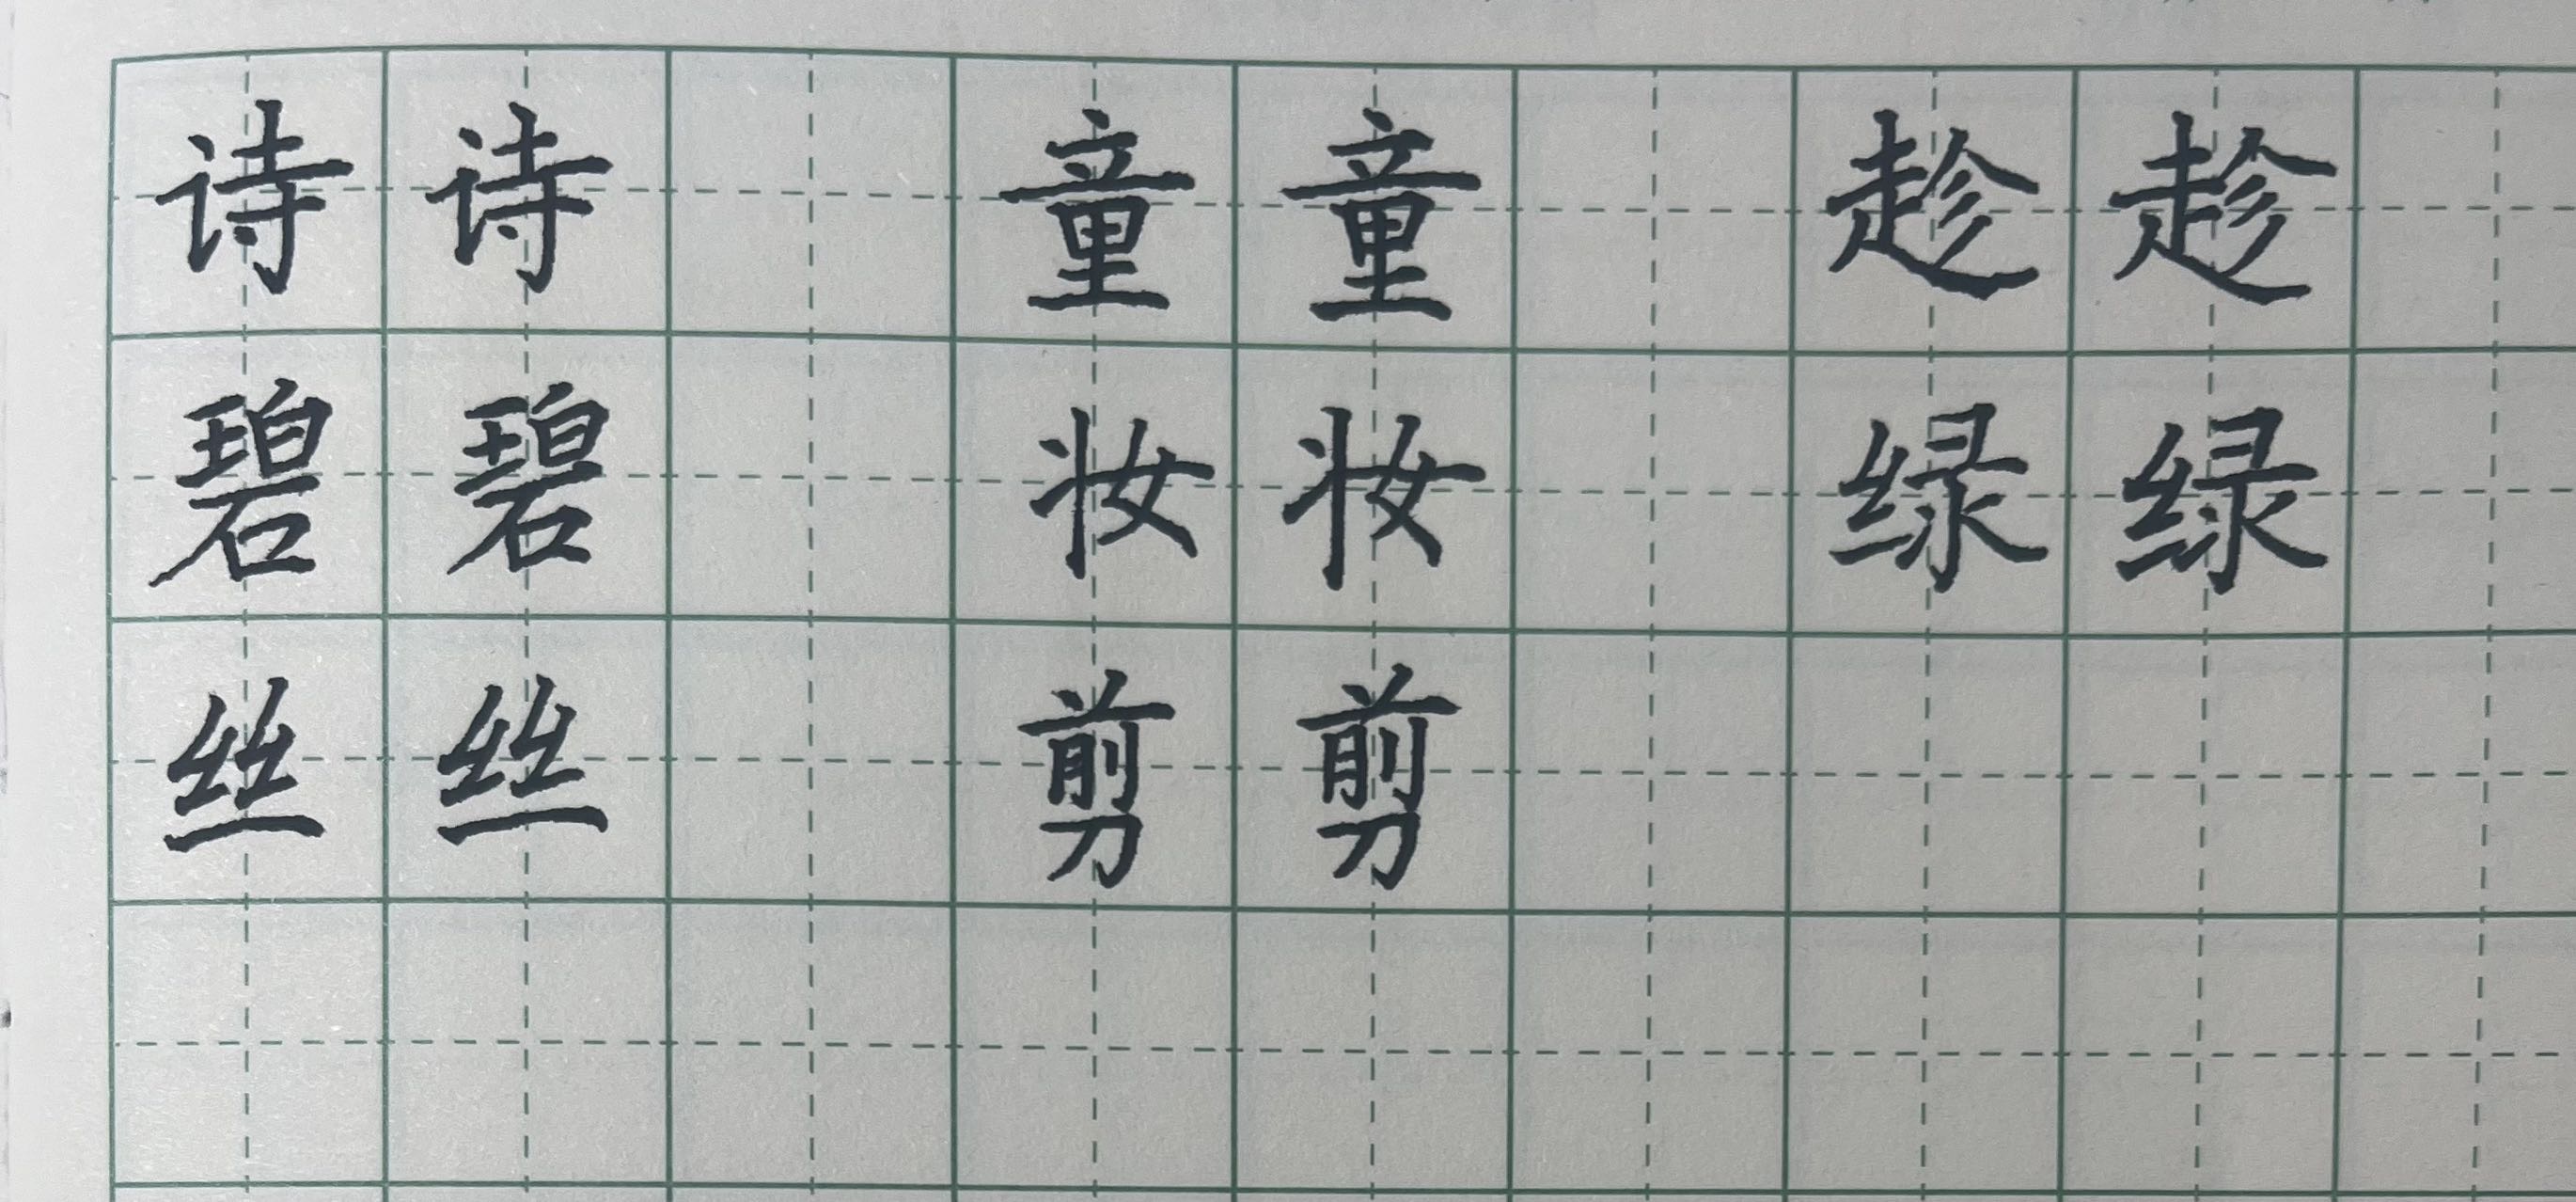 诗诗 童童 趁趁
碧碧 妆妆 绿绿
丝丝 剪剪